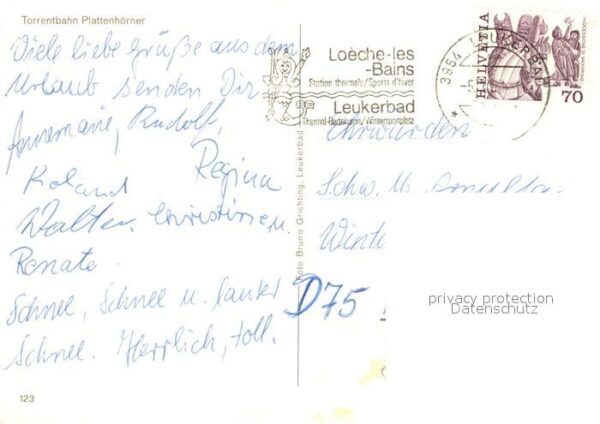 Torrentbahn Plattenhörner
Viele liebe Grüße aus dem
Urlaub senden Dir
Annemarie, Rudolf,
Roland Regina
Walter, Christine u.
Renate.
Schnee, Schnee u. lauter
Schnee. Herrlich, toll.
123
Foto Bruno Grichting, Leukerbad
Loèche-les
-Bains
Station thermale/Sports d'hiver
Leukerbad
Thermal-Badekurort/Wintersportplatz
3954 LEUKERBAD
HELVETIA
70
Ehrwürden
Schw. M.
Winte
D75
privacy protection
Datenschutz